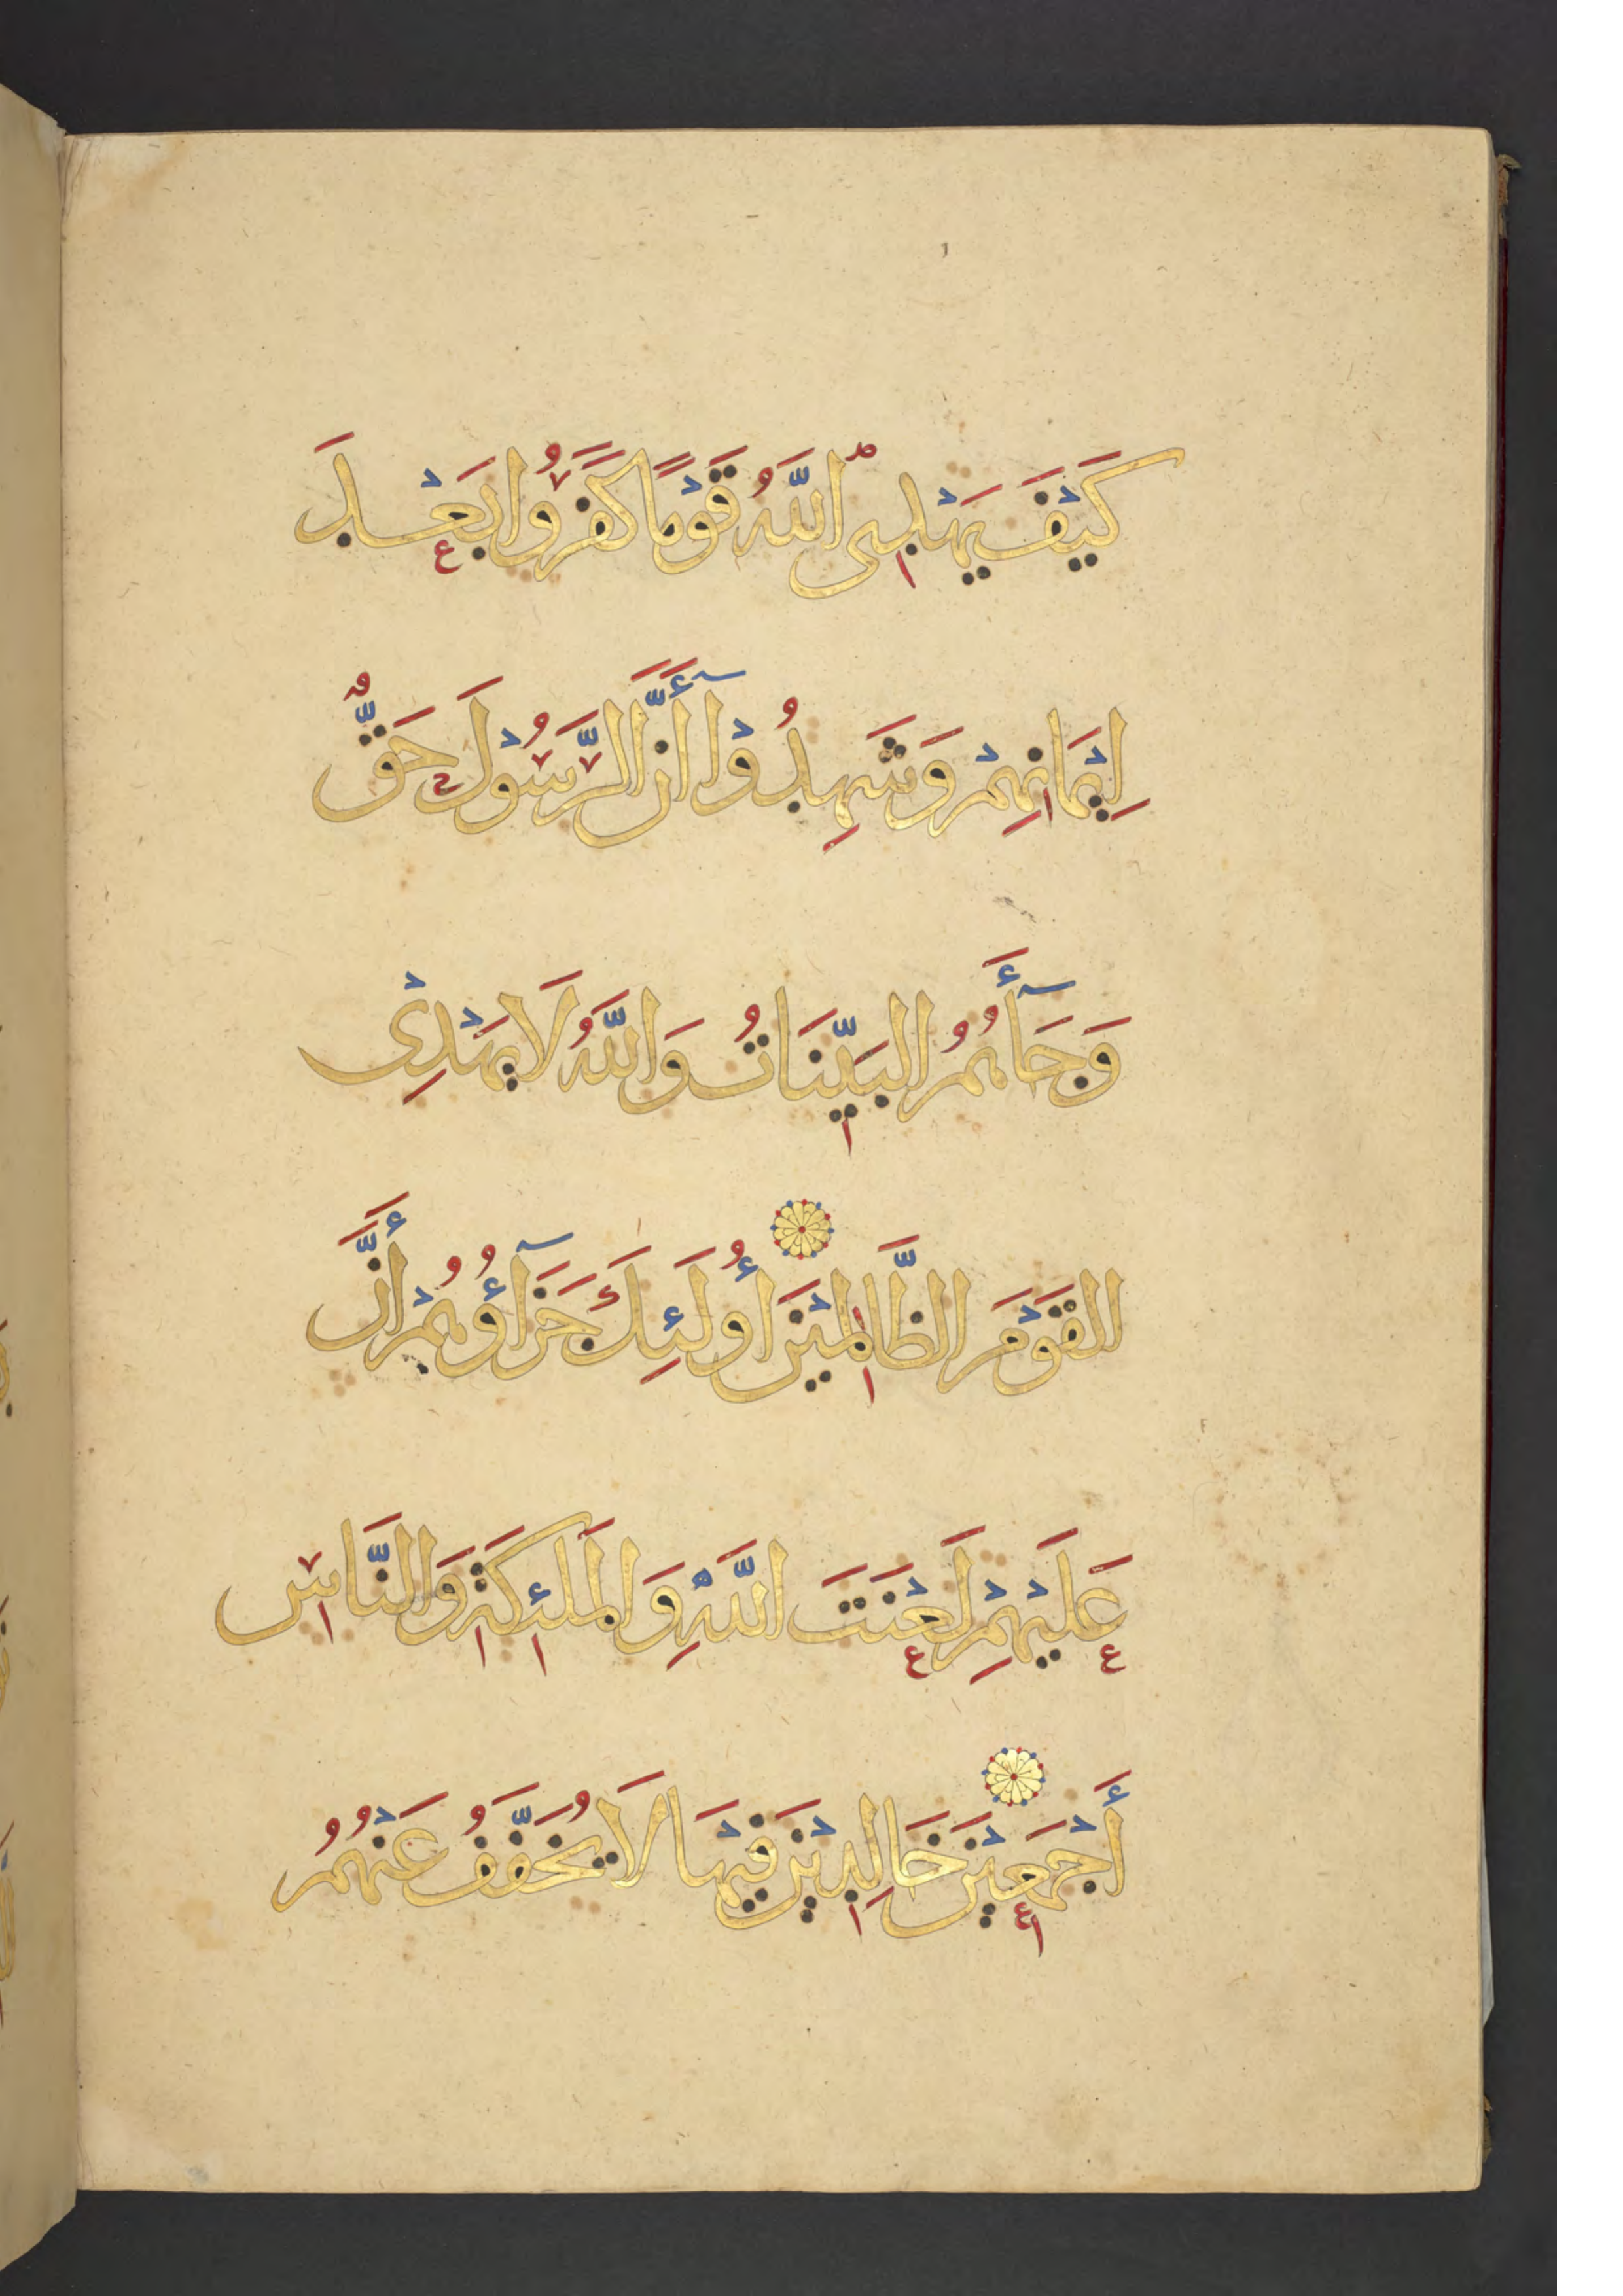 كَيْفَ يَهْدِى اللَّهُ قَوْمًا كَفَرُوا بَعْدَ
إِيْمَانِهِمْ وَشَهِدُوْآ أَنَّ الرَّسُوْلَ حَقٌّ
وَجَآءَهُمُ الْبَيِّنَاتُ وَاللَّهُ لَا يَهْدِىْ
الْقَوْمَ الظَّالِمِيْنَ أُولَئِكَ جَزَآؤُهُمْ أَنَّ
عَلَيْهِمْ لَعْنَتَ اللَّهِ وَالْمَلَئِكَةِ وَالنَّاسِ
أَجْمَعِيْنَ خَالِدِيْنَ فِيْهَا لَا يُخَفَّفُ عَنْهُمُ